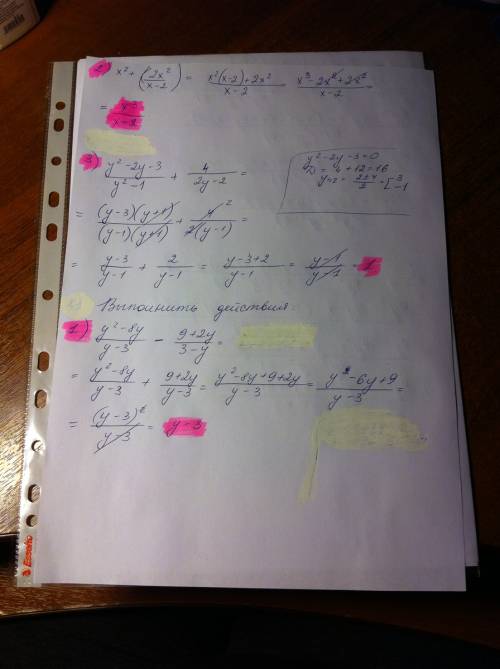 2) x² + (2x²/x-2) = x²(x-2)+2x²/x-2 = x³-2x²+2x²/x-2 =
= x³/x-2
3) y²-2y-3/y²-1 + 4/2y-2 =
y²-2y-3=0
D = 4+12=16
y = 2±4/2 = [3 -1
= (y-3)(y+1)/(y-1)(y+1) + 4²/2(y-1) =
= y-3/y-1 + 2/y-1 = y-3+2/y-1 = y-1/y-1 = 1
Выполнить действия:
1) y²-8y/y-3 - 9+2y/3-y =
= y²-8y/y-3 + 9+2y/y-3 = y²-8y+9+2y/y-3 = y²-6y+9/y-3 =
= (y-3)²/y-3 = y-3
Esselte